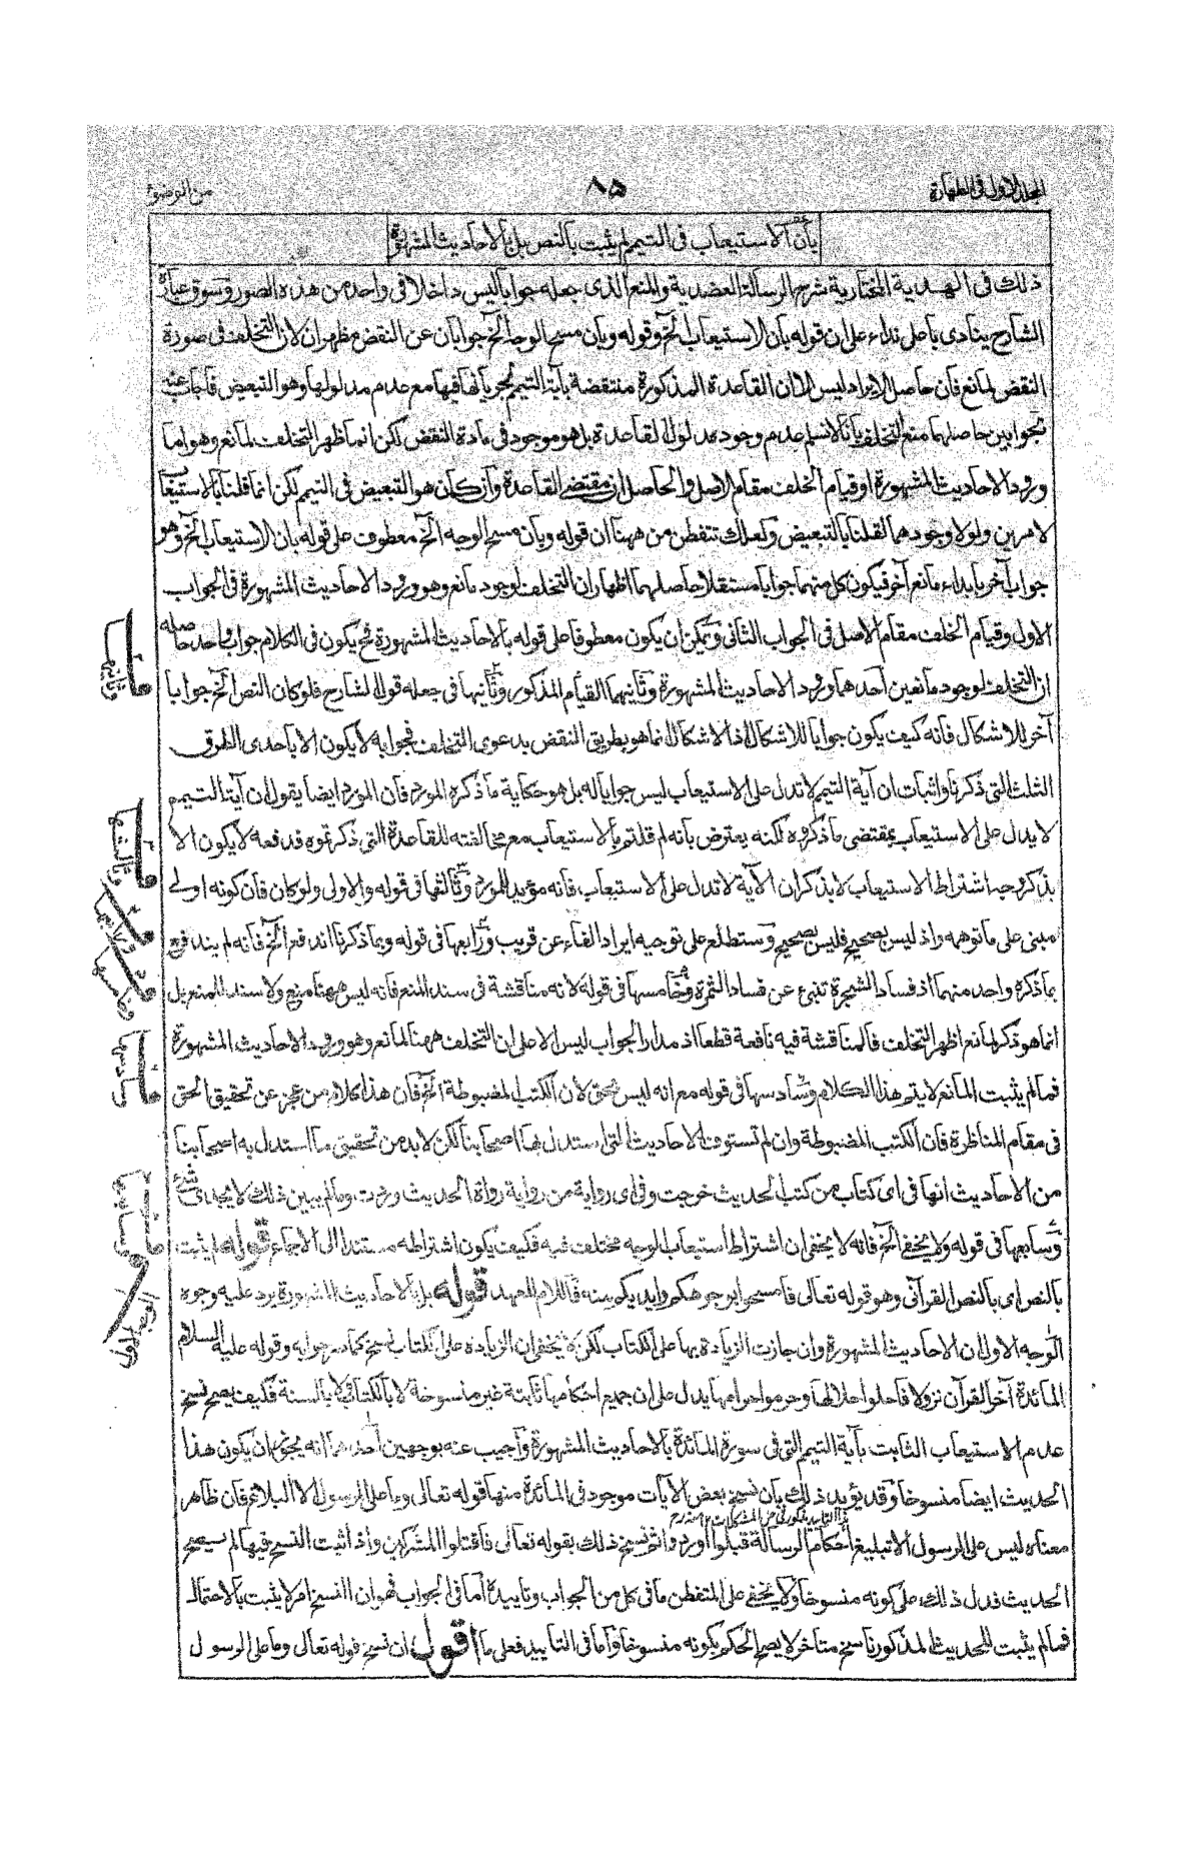 المجلد الاول فى الطهارة
٨٥
من الوضوء
بان الاستيعاب فى التيمم لم يثبت بالنص بل بالاحاديث المشهورة
ذلك فى الهدية المختارية شرح الرسالة العضدية والمنع الذى جعله جوابا ليس داخلا فى واحد من هذه الصور وسوق عبارة
الشارح ينادى باعلى نداء على ان قوله بان الاستيعاب الخ وقوله وبان مسح الوجه الخ جوابان عن النقض مظهران لان التخلف فى صورة
النقض لمانع فان حاصل الايراد ليس الا ان القاعدة المذكورة منتقضة بآية التيمم لجريانها فيها مع عدم مدلولها وهو التبعيض فاجاب عنه
بجوابين حاصلهما منع التخلف بانا لا نسلم عدم وجود مدلول القاعدة بل هو موجود فى مادة النقض لكن انما ظهر التخلف لمانع وهو اما
ورود الاحاديث المشهورة او قيام الخلف مقام الاصل والحاصل ان مقتضى القاعدة وان كان هو التبعيض فى التيمم لكن انما قلنا بالاستيعاب
لامرين ولولا وجودهما لقلنا بالتبعيض ولعلك تتفطن من ههنا ان قوله وبان مسح الوجه الخ معطوف على قوله بان الاستيعاب الخ وهو
جواب آخر بابداء مانع آخر فيكون كل منهما جوابا مستقلا حاصلهما اظهار ان التخلف لوجود مانع وهو ورود الاحاديث المشهورة فى الجواب
الاول وقيام الخلف مقام الاصل فى الجواب الثانى ويمكن ان يكون معطوفا على قوله بالاحاديث المشهورة فح يكون فى الكلام جواب واحد حاصله
ان التخلف لوجود مانعين احدهما ورود الاحاديث المشهورة وثانيهما القيام المذكور وثانيها فى جعله قول الشارح فلو كان النص الخ جوابا
آخر للاشكال فانه كيف يكون جوابا للاشكال اذ الاشكال انما هو بطريق النقض بدعوى التخلف فجوابه لا يكون الا باحدى الطرق
الثلث التى ذكرنا واثبات ان آية التيمم لا تدل على الاستيعاب ليس جوابا له بل هو حكاية ما ذكره المورد فان المورد ايضا يقول ان آية التيمم
لا يدل على الاستيعاب بمقتضى ما ذكروه لكنه يعترض بانه لم قلتم بالاستيعاب مع مخالفته للقاعدة التى ذكرتموه فدفعه لا يكون الا
بذكر وجه اشتراط الاستيعاب لا بذكر ان الآية لا تدل على الاستيعاب فانه مؤيد للمورد وثالثها فى قوله والاولى ولو كان فان كونه اولى
مبنى على ما توهمه واذ ليس بصحيح فليس بصحيح وستطلع على توجيه ايراد الفاء عن قريب ورابعها فى قوله وبما ذكرنا اندفع الخ فانه لم يندفع
بما ذكره واحد منهما اذ فساد الشجرة تنبئ عن فساد الثمرة وخامسها فى قوله لانه مناقشة فى سند المنع فانه ليس ههنا منع ولا سند للمنع بل
انما هو ذكر لمانع اظهر التخلف فالمناقشة فيه نافعة قطعا اذ مدار الجواب ليس الا على ان التخلف ههنا لمانع وهو ورود الاحاديث المشهورة
فما لم يثبت المانع لا يتم هذا الكلام وسادسها فى قوله مع انه ليس بحق لان الكتب المضبوطة الخ فان هذا كلام من عجز عن تحقيق الحق
فى مقام المناظرة فان الكتب المضبوطة وان لم تستوف الاحاديث التى استدل بها اصحابنا لكن لا بد من تحقيق ما استدل به اصحابنا
من الاحاديث انها فى اى كتاب من كتب الحديث خرجت وفى اى رواية من رواية رواة الحديث وردت وما لم يبين ذلك لا يجدى شئ
وسابعها فى قوله ولا يخفى الخ فانه لا يخفى ان اشتراط استيعاب الوجه مختلف فيه فكيف يكون اشتراطه مستندا الى الاجماع قوله لم يثبت
بالنص اى بالنص القرآنى وهو قوله تعالى فامسحوا بوجوهكم وايديكم منه فاللام للعهد قوله بل بالاحاديث المشهورة يرد عليه وجوه
الوجه الاول ان الاحاديث المشهورة وان جازت الزيادة بها على الكتاب لكن لا يخفى ان الزيادة على الكتاب نسخ كما صرحوا به وقوله عليه السلام
المائدة آخر القرآن نزولا فاحلوا حلالها وحرموا حرامها يدل على ان جميع احكامها ثابتة غير منسوخة لا بالكتاب ولا بالسنة فكيف يصح نسخ
عدم الاستيعاب الثابت بآية التيمم التى فى سورة المائدة بالاحاديث المشهورة واجيب عنه بوجهين احدهما انه يجوز ان يكون هذا
الحديث ايضا منسوخا وقد يؤيد ذلك بان نسخ بعض الآيات موجود فى المائدة منها قوله تعالى وما على الرسول الا البلاغ فان ظاهر
معناه ليس على الرسول الا تبليغ احكام الرسالة قبلوا او ردوا ثم نسخ ذلك بقوله تعالى فاقتلوا المشركين واذ اثبت النسخ فيها لم يصح
الحديث فدل ذلك على كونه منسوخا ولا يخفى على المتفطن ما فى كل من الجواب وتاييده اما فى الجواب فهو ان النسخ امر لا يثبت بالاحتمال
فما لم يثبت للحديث المذكور ناسخ متاخر لا يصح الحكم بكونه منسوخا واما فى التاييد فعلى ما اقول ان نسخ قوله تعالى وما على الرسول
وثانيها
وثالثها
ورابعها
وخامسها
وسادسها
وسابعها